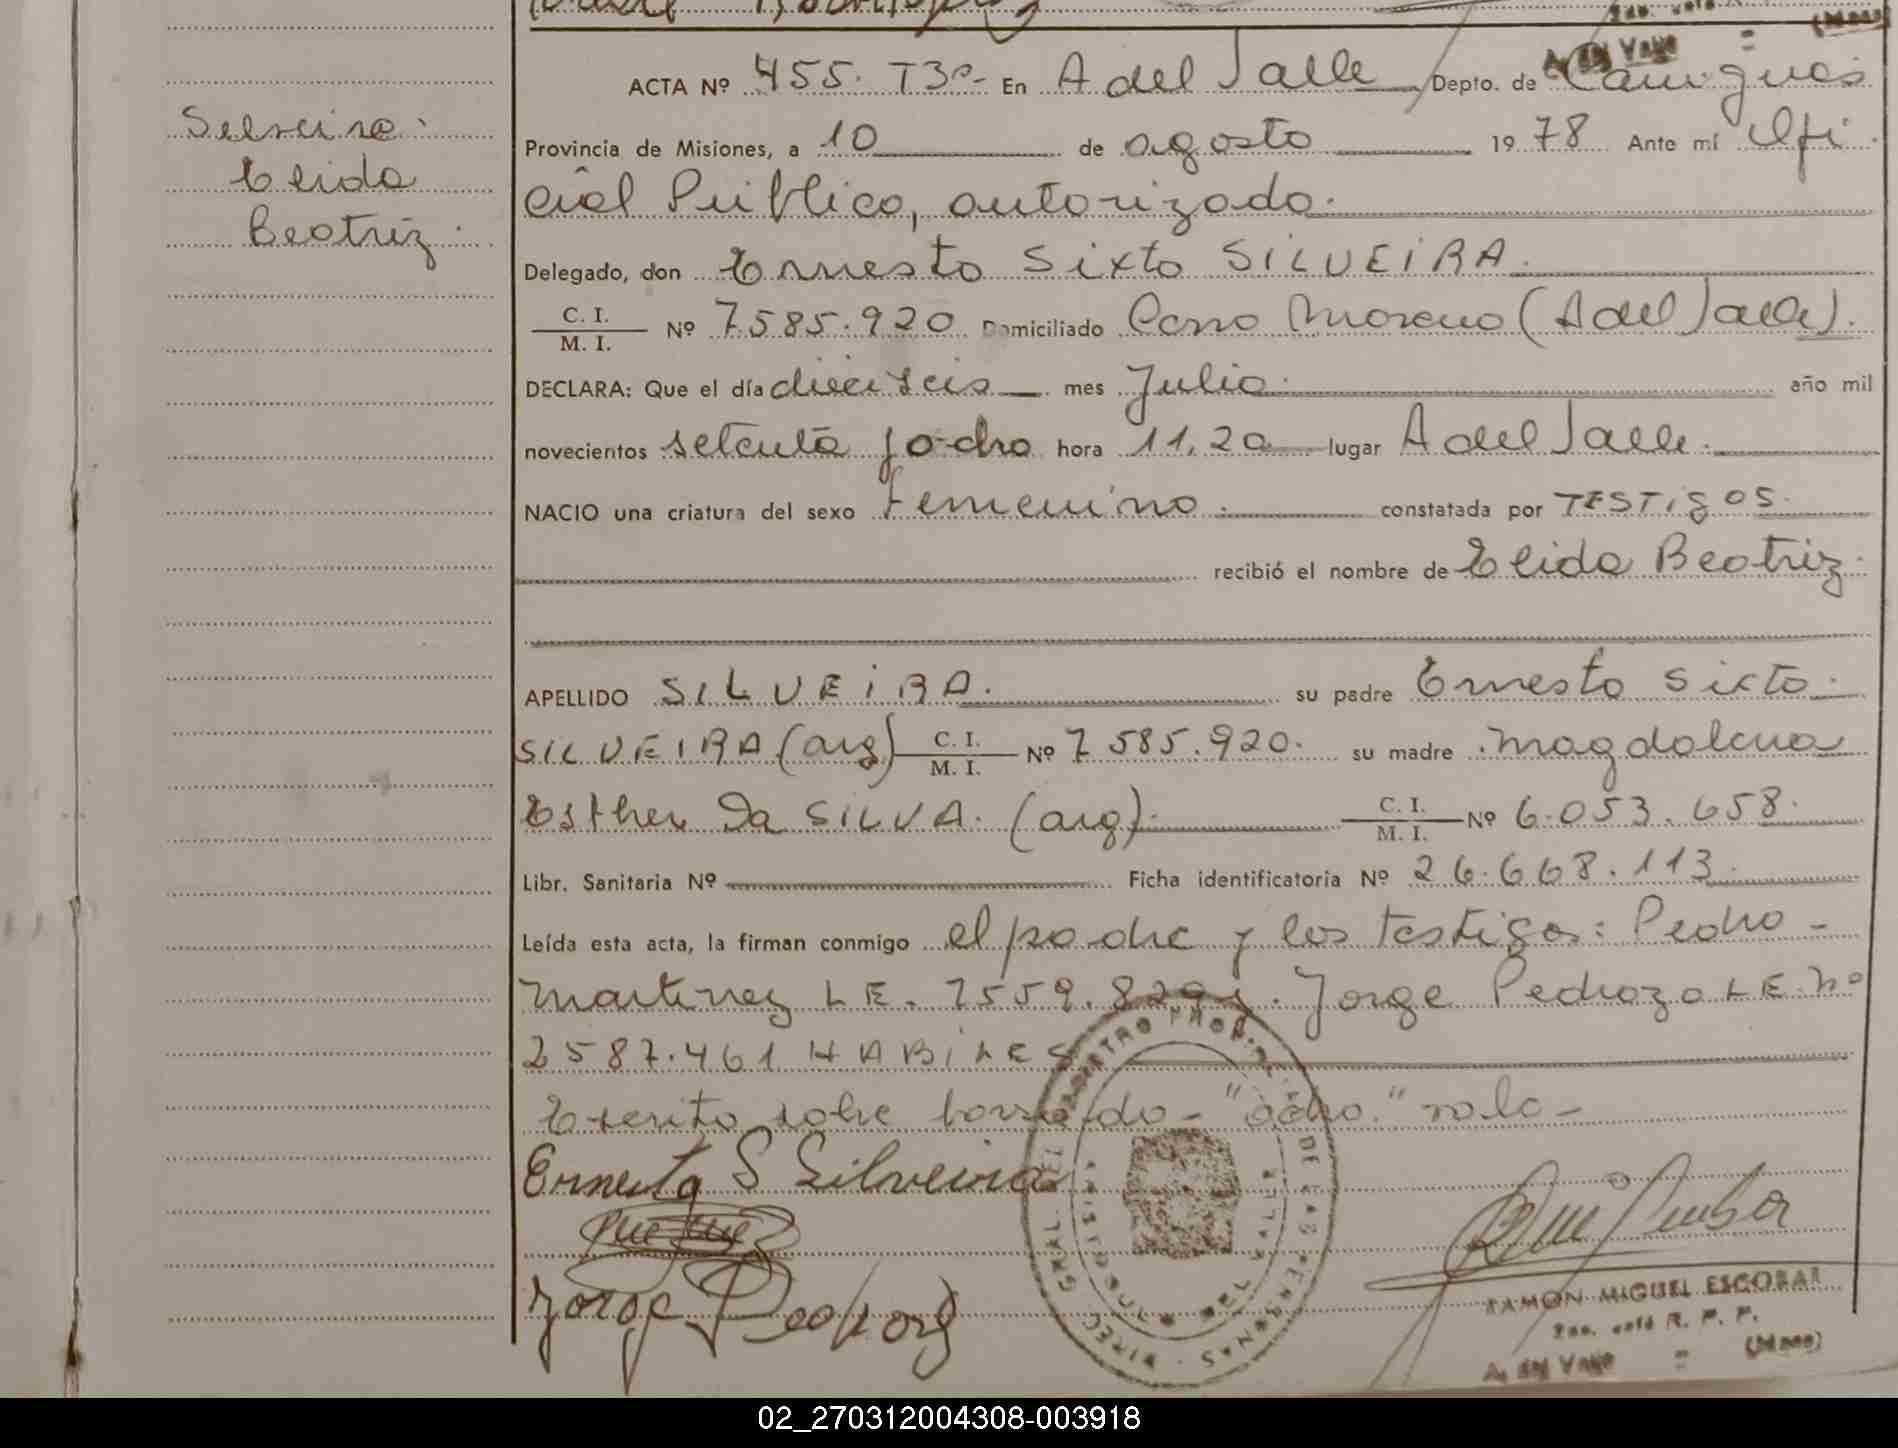 Silveira
Elida
Beatriz
ACTA Nº 455. T3º- En A del Valle Depto. de Cainguás
Provincia de Misiones, a 10 de agosto 1978 Ante mí Ofi
cial Público, autorizado.
Delegado, don Ernesto Sixto SILVEIRA.
C. I.
M. I. Nº 7.585.920 Domiciliado Cerro Moreno (A del Valle).
DECLARA: Que el día dieciseis mes Julio año mil
novecientos setenta y ocho hora 11,20 lugar A del Valle.
NACIO una criatura del sexo Femenino. constatada por TESTiGOS.
recibió el nombre de Elida Beatriz.
APELLIDO SILVEiRA. su padre Ernesto Sixto.
SILVEIRA (arg) C. I. M. I. Nº 7.585.920. su madre Magdalena
Esther Da SILVA. (arg). C. I. M. I. Nº 6.053.658.
Libr. Sanitaria Nº Ficha identificatoria Nº 26.668.113.
Leída esta acta, la firman conmigo el padre y los testigos: Pedro
Martinez LE. 7559.829 y. Jorge Pedrozo LE. Nº
2587.461 HABiLES
Escrito sobre borrado - "ocho." vale -
Ernesto S Silveira
Jorge Pedrozo
RAMON MIGUEL ESCOBAR
R. P. P.
A. del Valle = (Mnes)
02_270312004308-003918